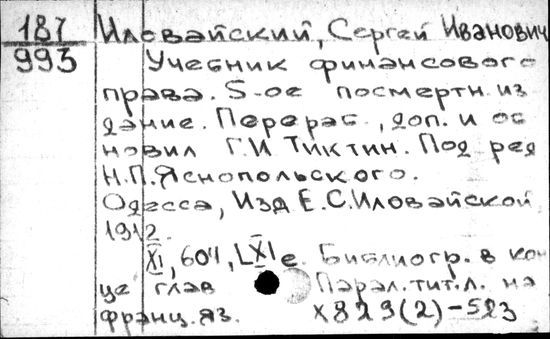 187 Иловайский, Сергей Иванович
993 Учебник финансового
права. 5-ое посмертн. из
дание. Перераб., доп. и об
новил Г.И Тиктин. Под ред
Н.П. Яснопольского.
Одесса, Изд Е.С. Иловайской
1912.
XI, 604, LXI с. Библиогр. в кон
це глав Парал. тит. л. на
франц. яз. X829(2)-523